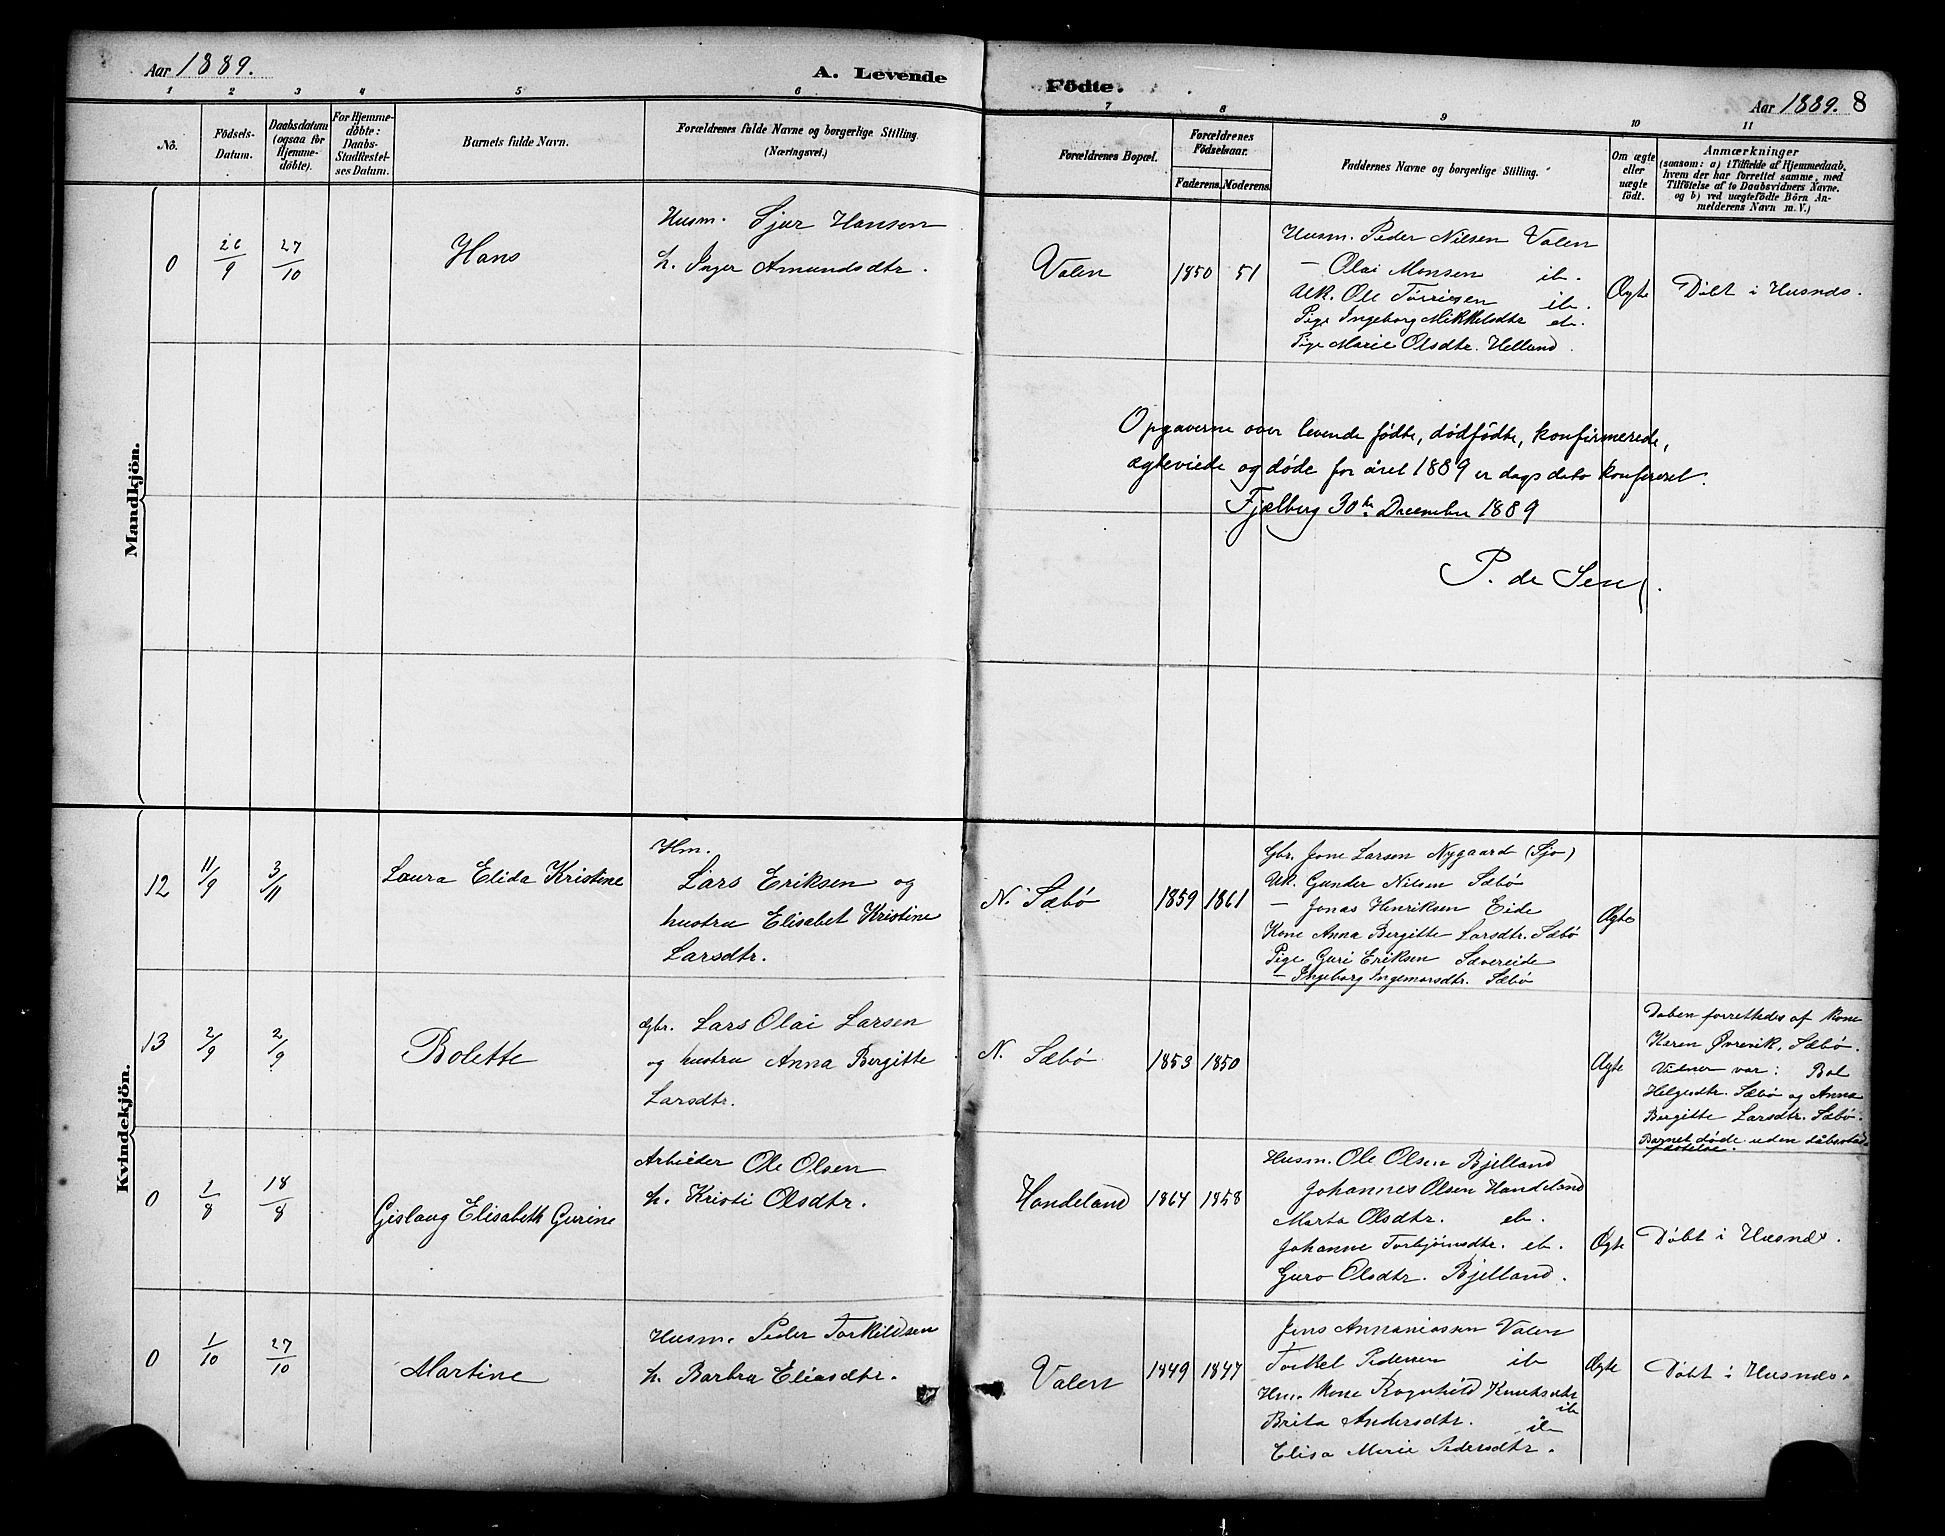 Aar 1889.
A. Levende
Födte.
Aar 1889. 8
1 2 3 4 5 6 7 8 9 10 11
No.
Födsels-
Datum.
Daabsdatum
(ogsaa for
Hjemme-
døbte).
For Hjemme-
døbte:
Daabs-
Stadfæstel-
ses Datum.
Barnets fulde Navn.
Forældrenes fulde Navne og borgerlige Stilling.
(Næringsvei.)
Forældrenes Bopæl.
Forældrenes
Födselsaar.
Faderens. Moderens.
Faddernes Navne og borgerlige Stilling.
Om ægte
eller
uægte
födt.
Anmærkninger
(saasom: a) i Tilfælde af Hjemmedaab,
hvem der har forrettet samme, med
Tilföielse af to Daabsvidners Navne.
og b) ved uægtefödte Börn An-
melderens Navn m. V.)
Mandkjön.
0 26/9 27/10 Hans
Husm. Sjur Hansen
h. Inger Amundsdtr.
Valen 1850 51
Husm. Peder Nilsen Valen
— Olai Monsen ib.
Uk. Ole Tørrisen ib.
Pige Ingeborg Mikkelsdtr eb.
Pige Marie Olsdtr. Helland.
Ægte
Døbt i Husnæs.
Opgaverne over levende fødte, dødfødte, konfirmerede,
ægteviede og døde for året 1889 er dags dato konfereret.
Fjelberg 30te December 1889
P. de Seu
Kvindekjön.
12 11/9 3/11 Laura Elida Kristine
Hm.
Lars Eriksen og
hustru Elisabet Kristine
Larsdtr.
N. Sæbø 1859 1861
Gbr. Jone Larsen Nygaard (Sjo)
Uk. Gunder Nilsen Sæbø
— Jonas Henriksen Eide
Kone Anna Bergitte Larsdtr. Sæbø
Pige Guri Eriksen Sævereide
— Ingeborg Ingemarsdtr. Sæbø
Ægte
13 2/9 2/9 Bolette
Gbr. Lars Olai Larsen
og hustru Anna Bergitte
Larsdtr.
N. Sæbø 1853 1850
Ægte
Daben forrettedes af kone
Karen Øvrevik, Sæbø.
Vidner var: Bol
Helgesdtr. Sæbø og Anna
Bergitte Larsdtr. Sæbø.
Barnet døde uden dåbsstad-
fæstelse.
0 1/8 18/8 Gislaug Elisabeth Gurine
Arbieder Ole Olsen
h. Kristi Olsdtr.
Handeland 1864 1858
Husm. Ole Olsen Bjelland
Johannes Olsen Handeland
Marta Olsdtr. eb.
Johanne Torbjørnsdtr. eb.
Guro Olsdtr. Bjelland.
Ægte
Døbt i Husnæs.
0 1/10 27/10 Martine
Husm. Peder Torkildsen
h. Barbra Eliasdtr.
Valen 1849 1847
Jens Annaniassen Valen
Torkel Pedersen ib
Hm. kone Ragnhild Knutsdtr
ib
Brita Andersdtr. ib
Elisa Marie Pedersdtr.
Ægte
Døbt i Husnæs.